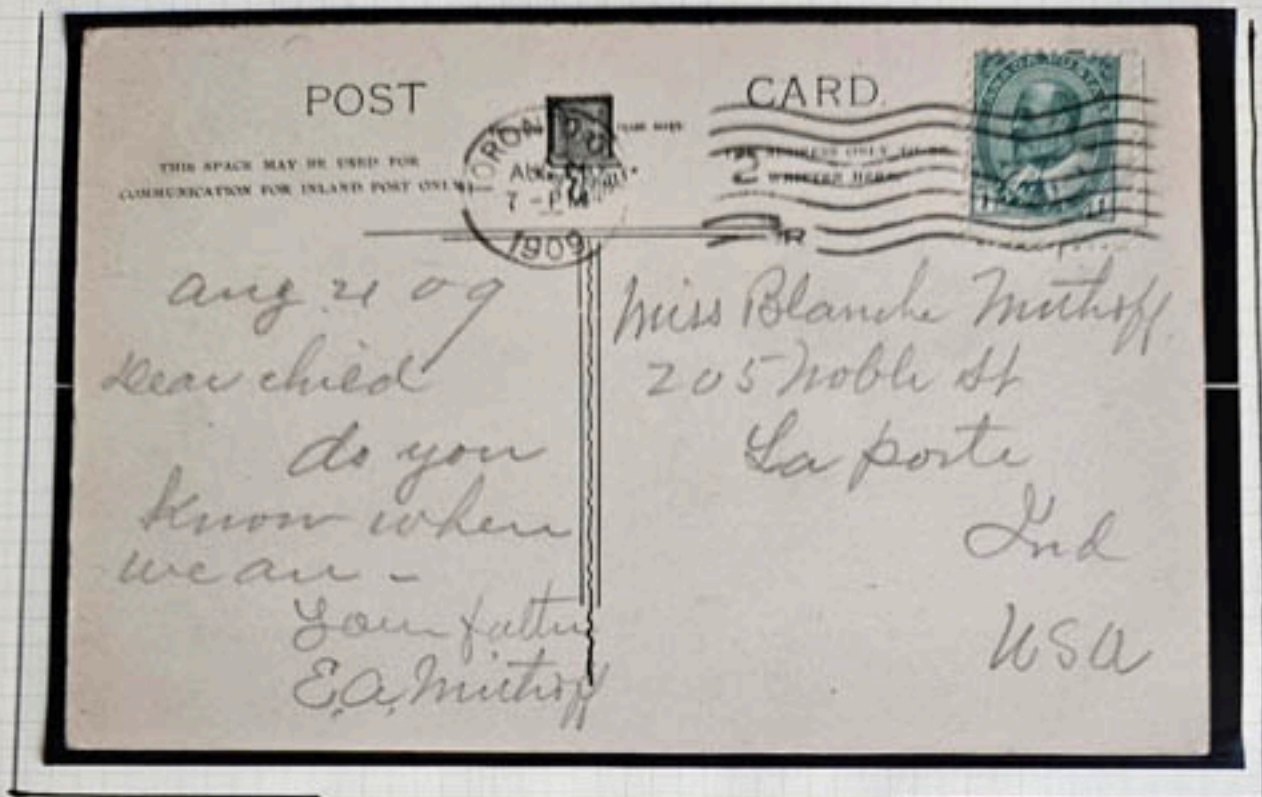 POST CARD
THIS SPACE MAY BE USED FOR
COMMUNICATION FOR INLAND POST ONLY
TORONTO
7 - PM
1909
CANADA POSTAGE
Aug 21 09
Dear child
do you
know where
we are -
Your father
E.A. Muthoff
Miss Blanche Muthoff
205 Noble St
La porte
Ind
USA